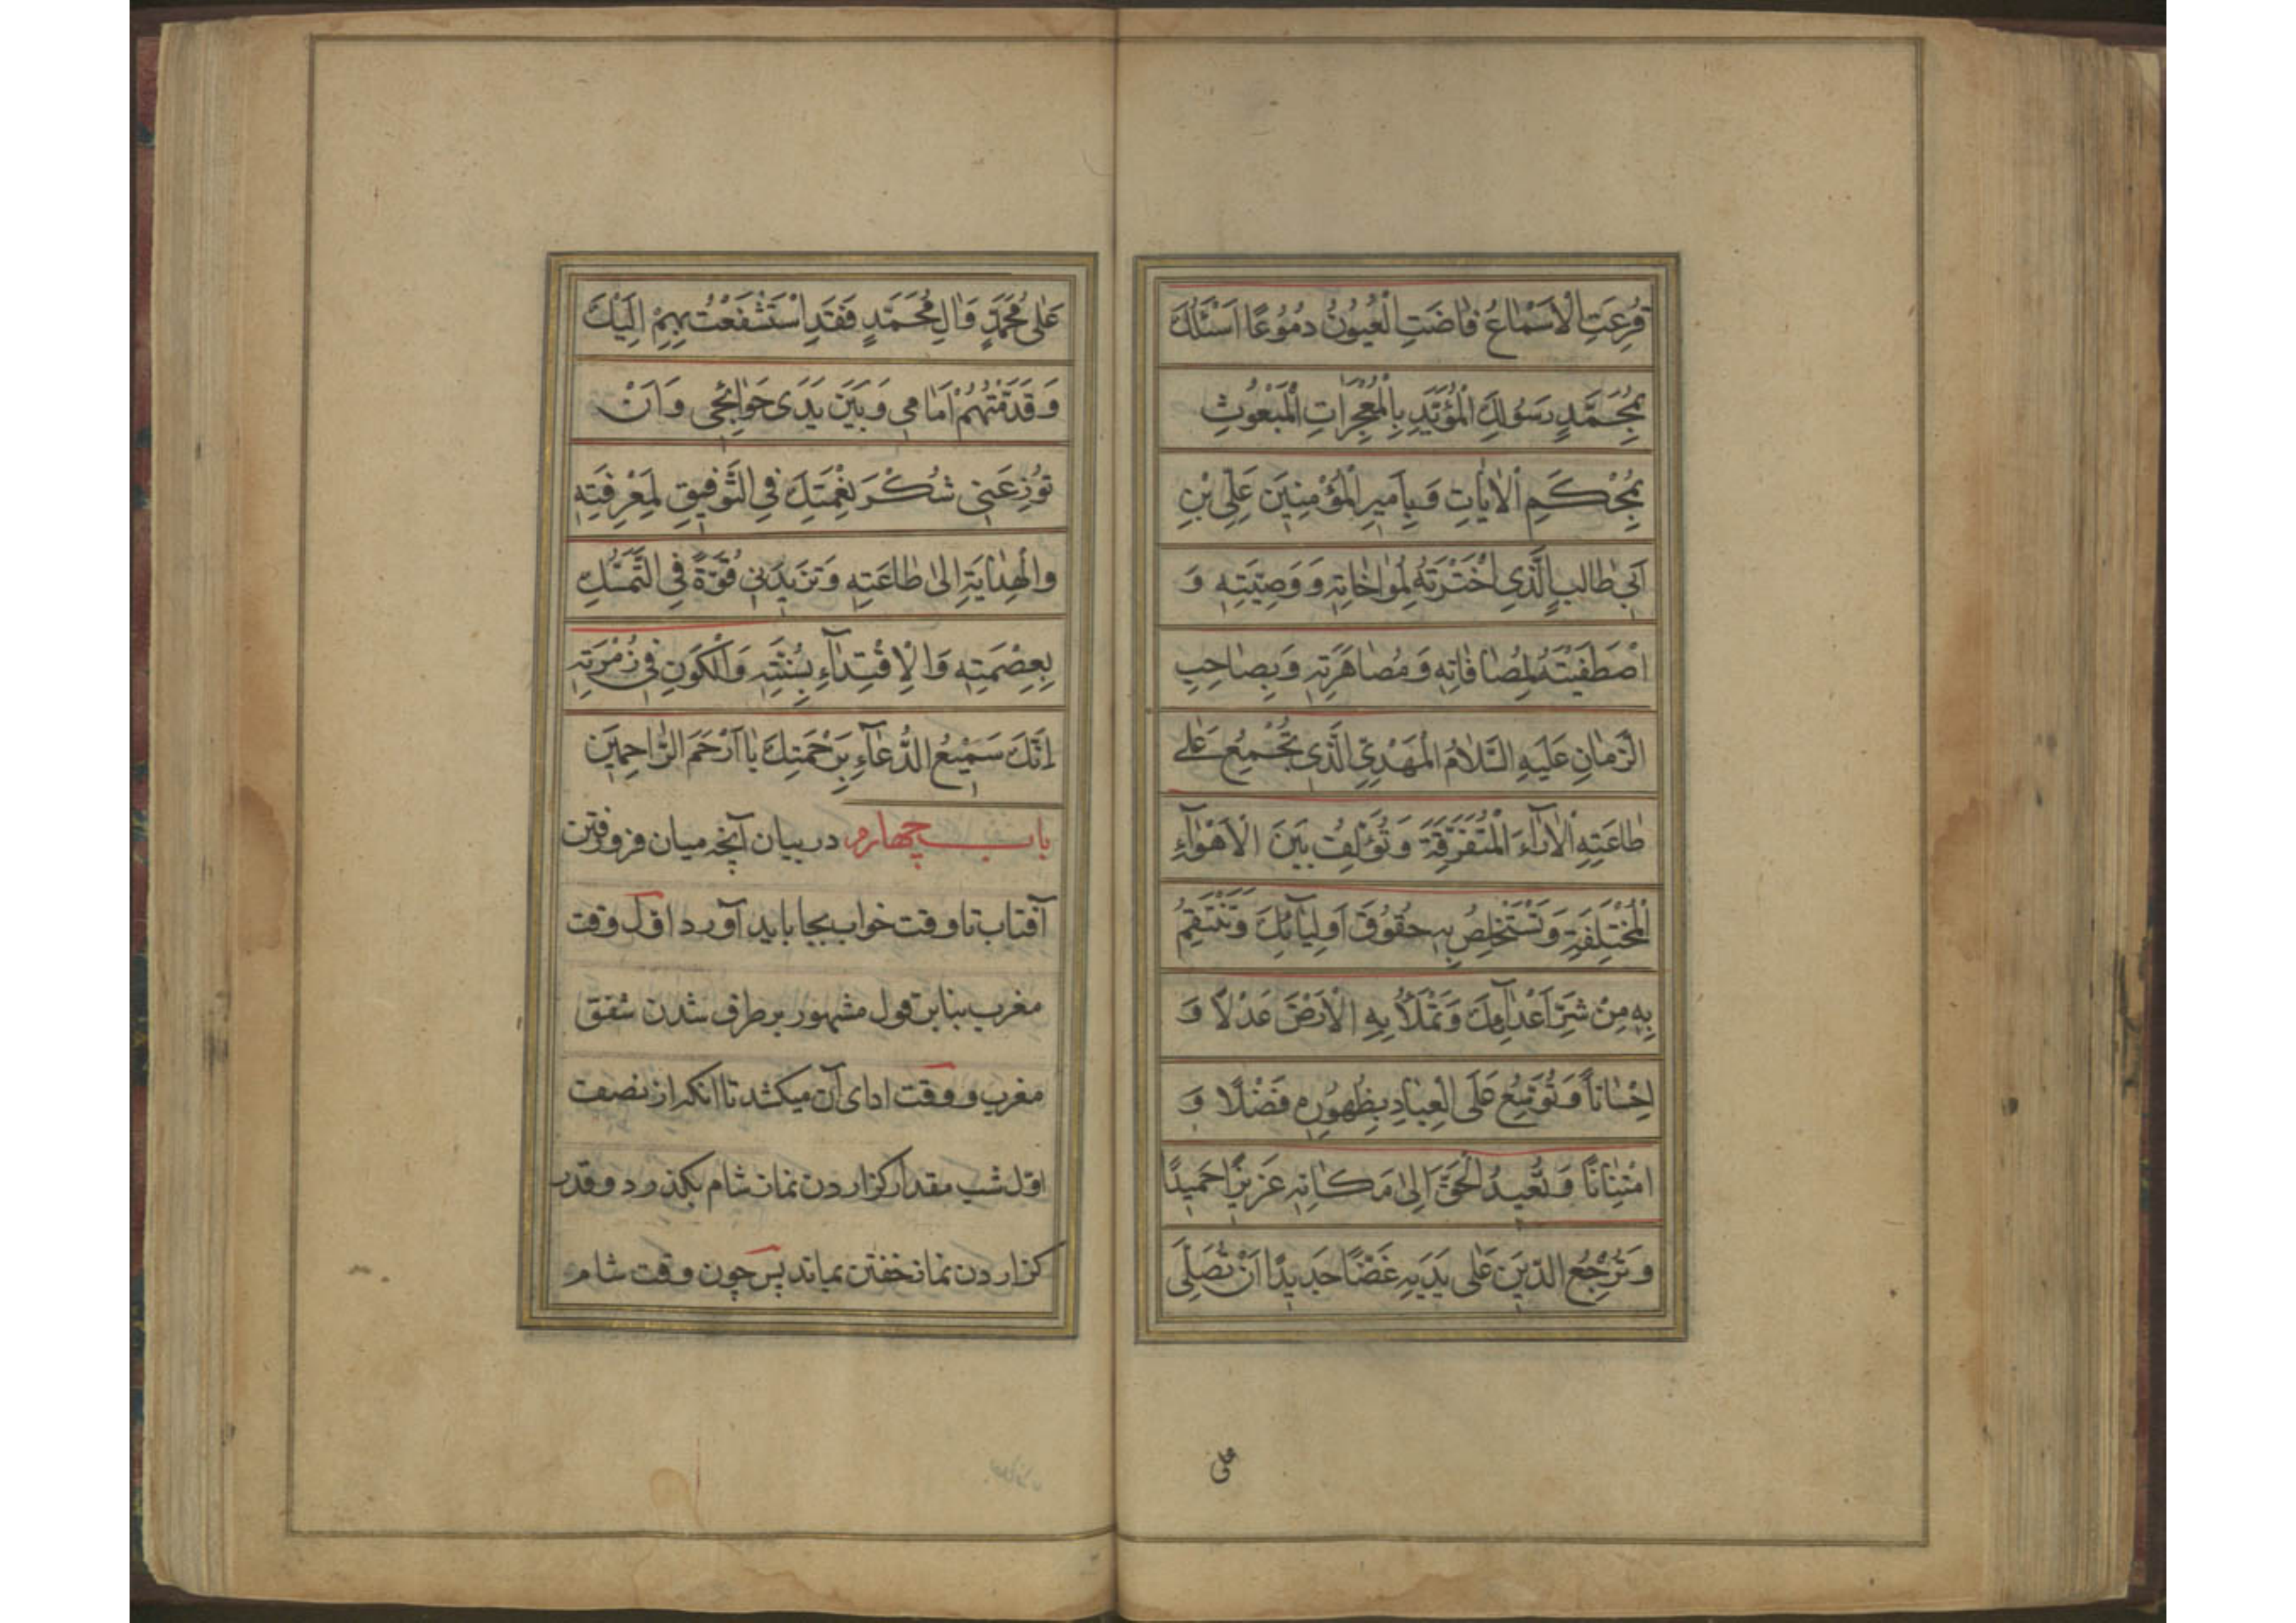 قُرِعَتِ الْاَسْمٰاعُ فٰاضَتِ الْعُيُونُ دُمُوعًا اَسْئَلُكَ
بِمُحَمَّدٍ رَسُولِكَ الْمُؤَيَّدِ بِالْمُعْجِزٰاتِ الْمَبْعُوثِ
بِمُحْكَمِ الْاٰيٰاتِ وَ بِاَمِيرِ الْمُؤْمِنِينَ عَلِىِّ بْنِ
اَبِى طٰالِبٍ الَّذِى اخْتَرْتَهُ لِمُوٰاخٰاتِهِ وَ وَصِيَّتِهِ وَ
اصْطَفَيْتَهُ لِمُصٰافٰاتِهِ وَ مُصٰاهَرَتِهِ وَ بِصٰاحِبِ
الزَّمٰانِ عَلَيْهِ السَّلٰامُ الْمَهْدِىِّ الَّذِى تُجْمِعُ عَلٰى
طٰاعَتِهِ الْاٰرٰآءَ الْمُتَفَرِّقَةَ وَ تُؤَلِّفُ بَيْنَ الْاَهْوٰآءِ
الْمُخْتَلِفَةِ وَ تَسْتَخْلِصُ بِهِ حُقُوقَ اَوْلِيٰآئِكَ وَ تَنْتَقِمُ
بِهِ مِنْ شَرِّ اَعْدٰآئِكَ وَ تَمْلَأُ بِهِ الْاَرْضَ عَدْلًا وَ
اِحْسٰانًا وَ تُوَسِّعُ عَلَى الْعِبٰادِ بِظُهُورِهِ فَضْلًا وَ
امْتِنٰانًا وَ تُعِيدُ الْحَقَّ اِلىٰ مَكٰانِهِ عَزِيزًا حَمِيدًا
وَ تُرْجِعُ الدِّينَ عَلٰى يَدَيْهِ غَضًّا جَدِيدًا اَنْ تُصَلِّىَ
على
عَلٰى مُحَمَّدٍ وَ اٰلِ مُحَمَّدٍ فَقَدِ اسْتَشْفَعْتُ بِهِمْ اِلَيْكَ
وَ قَدَّمْتُهُمْ اَمٰامِى وَ بَيْنَ يَدَىْ حَوٰائِجِى وَ اَنْ
تُوزِعَنِى شُكْرَ نِعْمَتِكَ فِى التَّوْفِيقِ لِمَعْرِفَتِهِ
وَ الْهِدٰايَةِ اِلىٰ طٰاعَتِهِ وَ تَزِيدَنِى قُوَّةً فِى التَّمَسُّكِ
بِعِصْمَتِهِ وَ الْاِقْتِدٰآءِ بِسُنَّتِهِ وَ الْكَوْنِ فِى زُمْرَتِهِ
اِنَّكَ سَمِيْعُ الدُّعٰآءِ بِرَحْمَتِكَ يٰا اَرْحَمَ الرّٰاحِمِينَ
باب چهارم در بيان آنچه ميان فرو رفتن
آفتاب تا وقت خواب بجا بايد آورد اوّل وقت
مغرب بنا بر قول مشهور بر طرف شدن شفق
مغرب و وقت اداى آن ميكشد تا انكه از نصف
اوّل شب مقدار كزاردن نماز شام بكذرد و قدر
كزاردن نماز خفتن بماند پس چون وقت شام